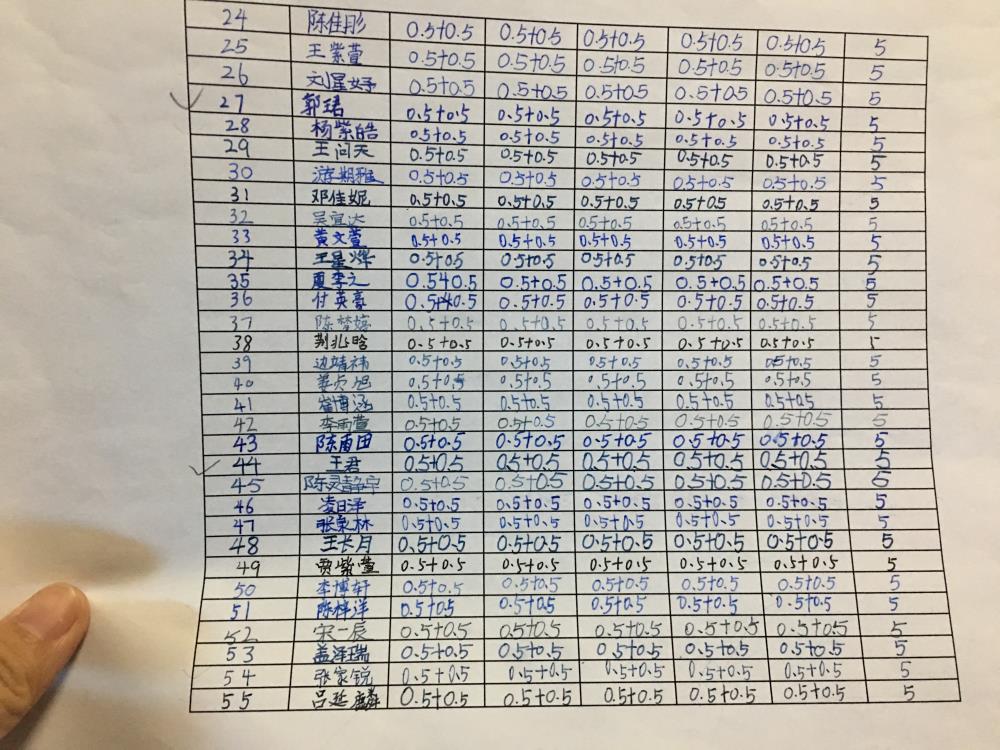 24 陈佳彤 0.5+0.5 0.5+0.5 0.5+0.5 0.5+0.5 0.5+0.5 5
25 王紫萱 0.5+0.5 0.5+0.5 0.5+0.5 0.5+0.5 0.5+0.5 5
26 刘星妤 0.5+0.5 0.5+0.5 0.5+0.5 0.5+0.5 0.5+0.5 5
27 郭珺 0.5+0.5 0.5+0.5 0.5+0.5 0.5+0.5 0.5+0.5 5
28 杨紫皓 0.5+0.5 0.5+0.5 0.5+0.5 0.5+0.5 0.5+0.5 5
29 王问天 0.5+0.5 0.5+0.5 0.5+0.5 0.5+0.5 0.5+0.5 5
30 游期雅 0.5+0.5 0.5+0.5 0.5+0.5 0.5+0.5 0.5+0.5 5
31 邓佳妮 0.5+0.5 0.5+0.5 0.5+0.5 0.5+0.5 0.5+0.5 5
32 吴宜达 0.5+0.5 0.5+0.5 0.5+0.5 0.5+0.5 0.5+0.5 5
33 黄文萱 0.5+0.5 0.5+0.5 0.5+0.5 0.5+0.5 0.5+0.5 5
34 王星烨 0.5+0.5 0.5+0.5 0.5+0.5 0.5+0.5 0.5+0.5 5
35 夏李之 0.5+0.5 0.5+0.5 0.5+0.5 0.5+0.5 0.5+0.5 5
36 付英豪 0.5+0.5 0.5+0.5 0.5+0.5 0.5+0.5 0.5+0.5 5
37 陈梦婷 0.5+0.5 0.5+0.5 0.5+0.5 0.5+0.5 0.5+0.5 5
38 荆兆晗 0.5+0.5 0.5+0.5 0.5+0.5 0.5+0.5 0.5+0.5 5
39 边靖祎 0.5+0.5 0.5+0.5 0.5+0.5 0.5+0.5 0.5+0.5 5
40 姜贞旭 0.5+0.5 0.5+0.5 0.5+0.5 0.5+0.5 0.5+0.5 5
41 崔博涵 0.5+0.5 0.5+0.5 0.5+0.5 0.5+0.5 0.5+0.5 5
42 李雨萱 0.5+0.5 0.5+0.5 0.5+0.5 0.5+0.5 0.5+0.5 5
43 陈雨田 0.5+0.5 0.5+0.5 0.5+0.5 0.5+0.5 0.5+0.5 5
44 王君 0.5+0.5 0.5+0.5 0.5+0.5 0.5+0.5 0.5+0.5 5
45 陈灵静宇 0.5+0.5 0.5+0.5 0.5+0.5 0.5+0.5 0.5+0.5 5
46 凌日泽 0.5+0.5 0.5+0.5 0.5+0.5 0.5+0.5 0.5+0.5 5
47 张家林 0.5+0.5 0.5+0.5 0.5+0.5 0.5+0.5 0.5+0.5 5
48 王长月 0.5+0.5 0.5+0.5 0.5+0.5 0.5+0.5 0.5+0.5 5
49 贾紫萱 0.5+0.5 0.5+0.5 0.5+0.5 0.5+0.5 0.5+0.5 5
50 李博轩 0.5+0.5 0.5+0.5 0.5+0.5 0.5+0.5 0.5+0.5 5
51 陈梓洋 0.5+0.5 0.5+0.5 0.5+0.5 0.5+0.5 0.5+0.5 5
52 宋一辰 0.5+0.5 0.5+0.5 0.5+0.5 0.5+0.5 0.5+0.5 5
53 盖泽瑞 0.5+0.5 0.5+0.5 0.5+0.5 0.5+0.5 0.5+0.5 5
54 张家锐 0.5+0.5 0.5+0.5 0.5+0.5 0.5+0.5 0.5+0.5 5
55 吕延麟 0.5+0.5 0.5+0.5 0.5+0.5 0.5+0.5 0.5+0.5 5